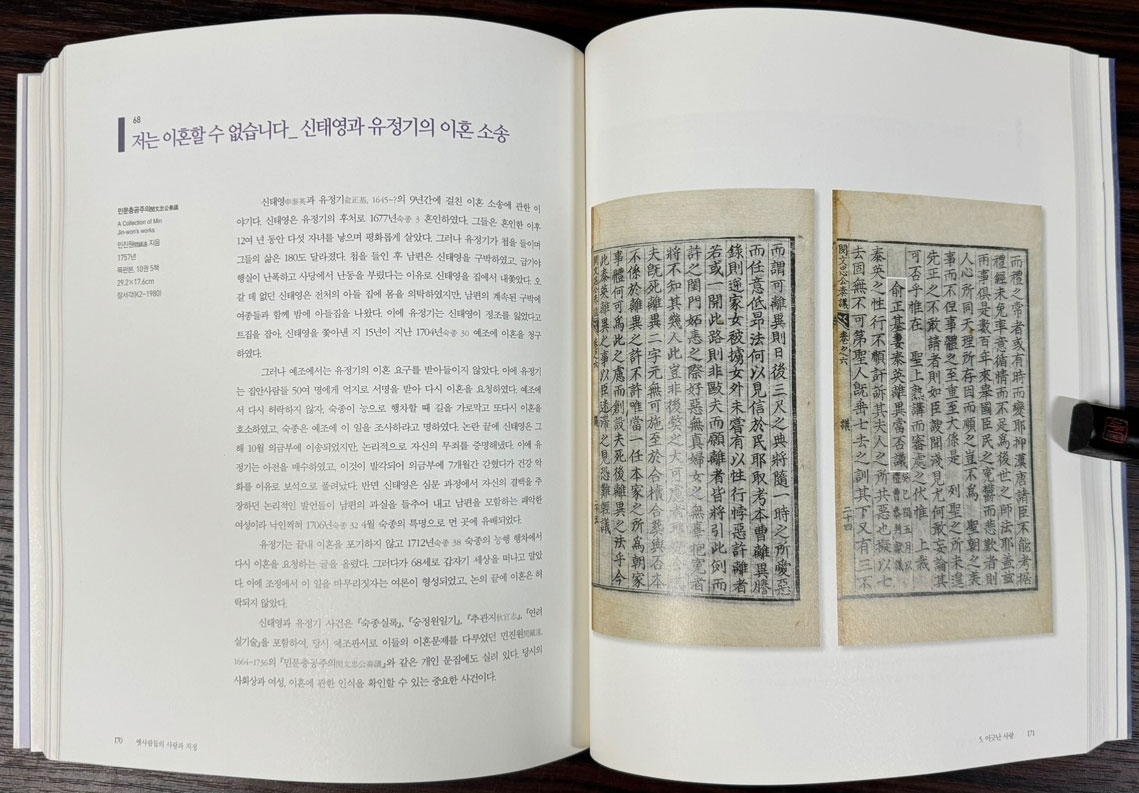 68
저는 이혼할 수 없습니다_ 신태영과 유정기의 이혼 소송
민문충공주의閔文忠公奏議
A Collection of Min
Jin-won's works
민진원閔鎭遠 지음
1757년
목판본, 10권 5책
29.2×17.6cm
장서각(K2-1980)
신태영申泰英과 유정기兪正基, 1645~?의 9년간에 걸친 이혼 소송에 관한 이
야기다. 신태영은 유정기의 후처로 1677년숙종 3 혼인하였다. 그들은 혼인한 이후
12여 년 동안 다섯 자녀를 낳으며 평화롭게 살았다. 그러나 유정기가 첩을 들이며
그들의 삶은 180도 달라졌다. 첩을 들인 후 남편은 신태영을 구박하였고, 급기야
행실이 난폭하고 사당에서 난동을 부렸다는 이유로 신태영을 집에서 내쫓았다. 오
갈 데 없던 신태영은 전처의 아들 집에 몸을 의탁하였지만, 남편의 계속된 구박에
여종들과 함께 밤에 아들집을 나왔다. 이에 유정기는 신태영이 정조를 잃었다고
트집을 잡아, 신태영을 쫓아낸 지 15년이 지난 1704년숙종 30 예조에 이혼을 청구
하였다.
그러나 예조에서는 유정기의 이혼 요구를 받아들이지 않았다. 이에 유정기
는 집안사람들 50여 명에게 억지로 서명을 받아 다시 이혼을 요청하였다. 예조에
서 다시 허락하지 않자, 숙종이 능으로 행차할 때 길을 가로막고 또다시 이혼을
호소하였고, 숙종은 예조에 이 일을 조사하라고 명하였다. 논란 끝에 신태영은 그
해 10월 의금부에 이송되었지만, 논리적으로 자신의 무죄를 증명해냈다. 이에 유
정기는 아전을 매수하였고, 이것이 발각되어 의금부에 7개월간 갇혔다가 건강 악
화를 이유로 보석으로 풀려났다. 반면 신태영은 심문 과정에서 자신의 결백을 주
장하던 논리적인 발언들이 남편의 과실을 들추어 내고 남편을 모함하는 패악한
여성이라 낙인찍혀 1706년숙종 32 4월 숙종의 특명으로 먼 곳에 유배되었다.
유정기는 끝내 이혼을 포기하지 않고 1712년숙종 38 숙종의 능행 행차에서
다시 이혼을 요청하는 글을 올렸다. 그러다가 68세로 갑자기 세상을 떠나고 말았
다. 이에 조정에서 이 일을 마무리짓자는 여론이 형성되었고, 논의 끝에 이혼은 허
락되지 않았다.
신태영과 유정기 사건은 『숙종실록』, 『승정원일기』, 『추관지秋官志』, 『연려
실기술』을 포함하여, 당시 예조판서로 이들의 이혼문제를 다루었던 민진원閔鎭遠,
1664~1736의 『민문충공주의閔文忠公奏議』와 같은 개인 문집에도 실려 있다. 당시의
사회상과 여성, 이혼에 관한 인식을 확인할 수 있는 중요한 사건이다.
170 옛사람들의 사랑과 치정
而禮之常者或有時而變耶抑漢唐諸臣不能考据
禮經未免率意循情而不足爲後世之師法耶盖玆
兩事俱是數百年來擧國臣民之寃鬱而悲歎者則
人心所同天理所存因而順之豈不爲 聖朝之美
事而不但事體之至重至大係是 列聖之所未遑
先正之不敢請者則如臣謏聞淺見尤何敢妄論其
可否乎惟在 聖上熟講而審處之伏惟 上裁
兪正基妻泰英離異當否議
泰英之性行不順訐訴其夫人之所共惡也擬以七
去固無不可第聖人旣垂七去之訓其下又有三不
閔文忠公奏議 卷之六 議 二十四
而謂可離異則日後三尺之典將隨一時之所愛惡
而任意低昂法何以見信於民耶取考本曹離異謄
錄則逆家女被擄女外未嘗有以性行悖惡許離者
若或一開此路則非歐夫而願離者皆將引此例而
訐之閨門妬悍之際好惡無眞婦女之無辜抱寃者
將不知其幾人此豈非後弊之大可慮者耶
夫旣死離異二字元無可施至於合櫝合葬與否本
不係於離異之許不許唯當一任本家之所爲朝家
事體何可爲此之慮而創設夫死後離異之法乎今
此泰英離異之事以臣迷滯之見恐難輕議
5. 어긋난 사랑 171